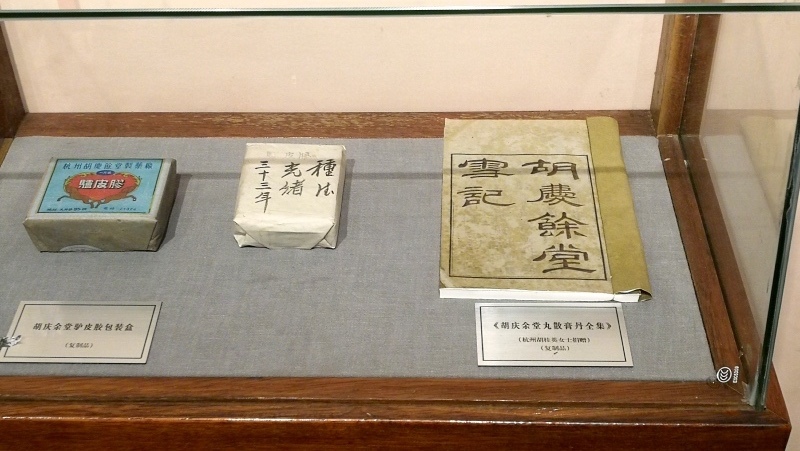 杭州胡慶餘堂製藥廠
驢皮膠
種德
光緒
三十三年
胡慶餘堂
雪記
胡庆余堂驴皮胶包装盒
(复制品)
《胡庆余堂丸散膏丹全集》
(杭州胡桂英女士捐赠)
(复制品)